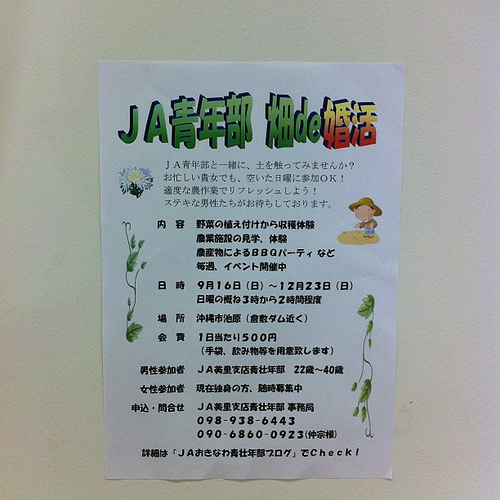 JA青年部 畑de婚活
JA青年部と一緒に、土を触ってみませんか？
お忙しい貴女でも、空いた日曜に参加OK！
適度な農作業でリフレッシュしよう！
ステキな男性たちがお待ちしております。
内 容 野菜の植え付けから収穫体験
農業施設の見学、体験
農産物によるBBQパーティ など
毎週、イベント開催中
日 時 9月16日（日）～12月23日（日）
日曜の概ね3時から2時間程度
場 所 沖縄市池原（倉敷ダム近く）
会 費 1日当たり500円
（手袋、飲み物等を用意致します）
男性参加者 JA美里支店青壮年部 22歳～40歳
女性参加者 現在独身の方、随時募集中
申込・問合せ JA美里支店青壮年部 事務局
098-938-6443
090-6860-0923(仲宗根)
詳細は「JAおきなわ青壮年部ブログ」でCheck！